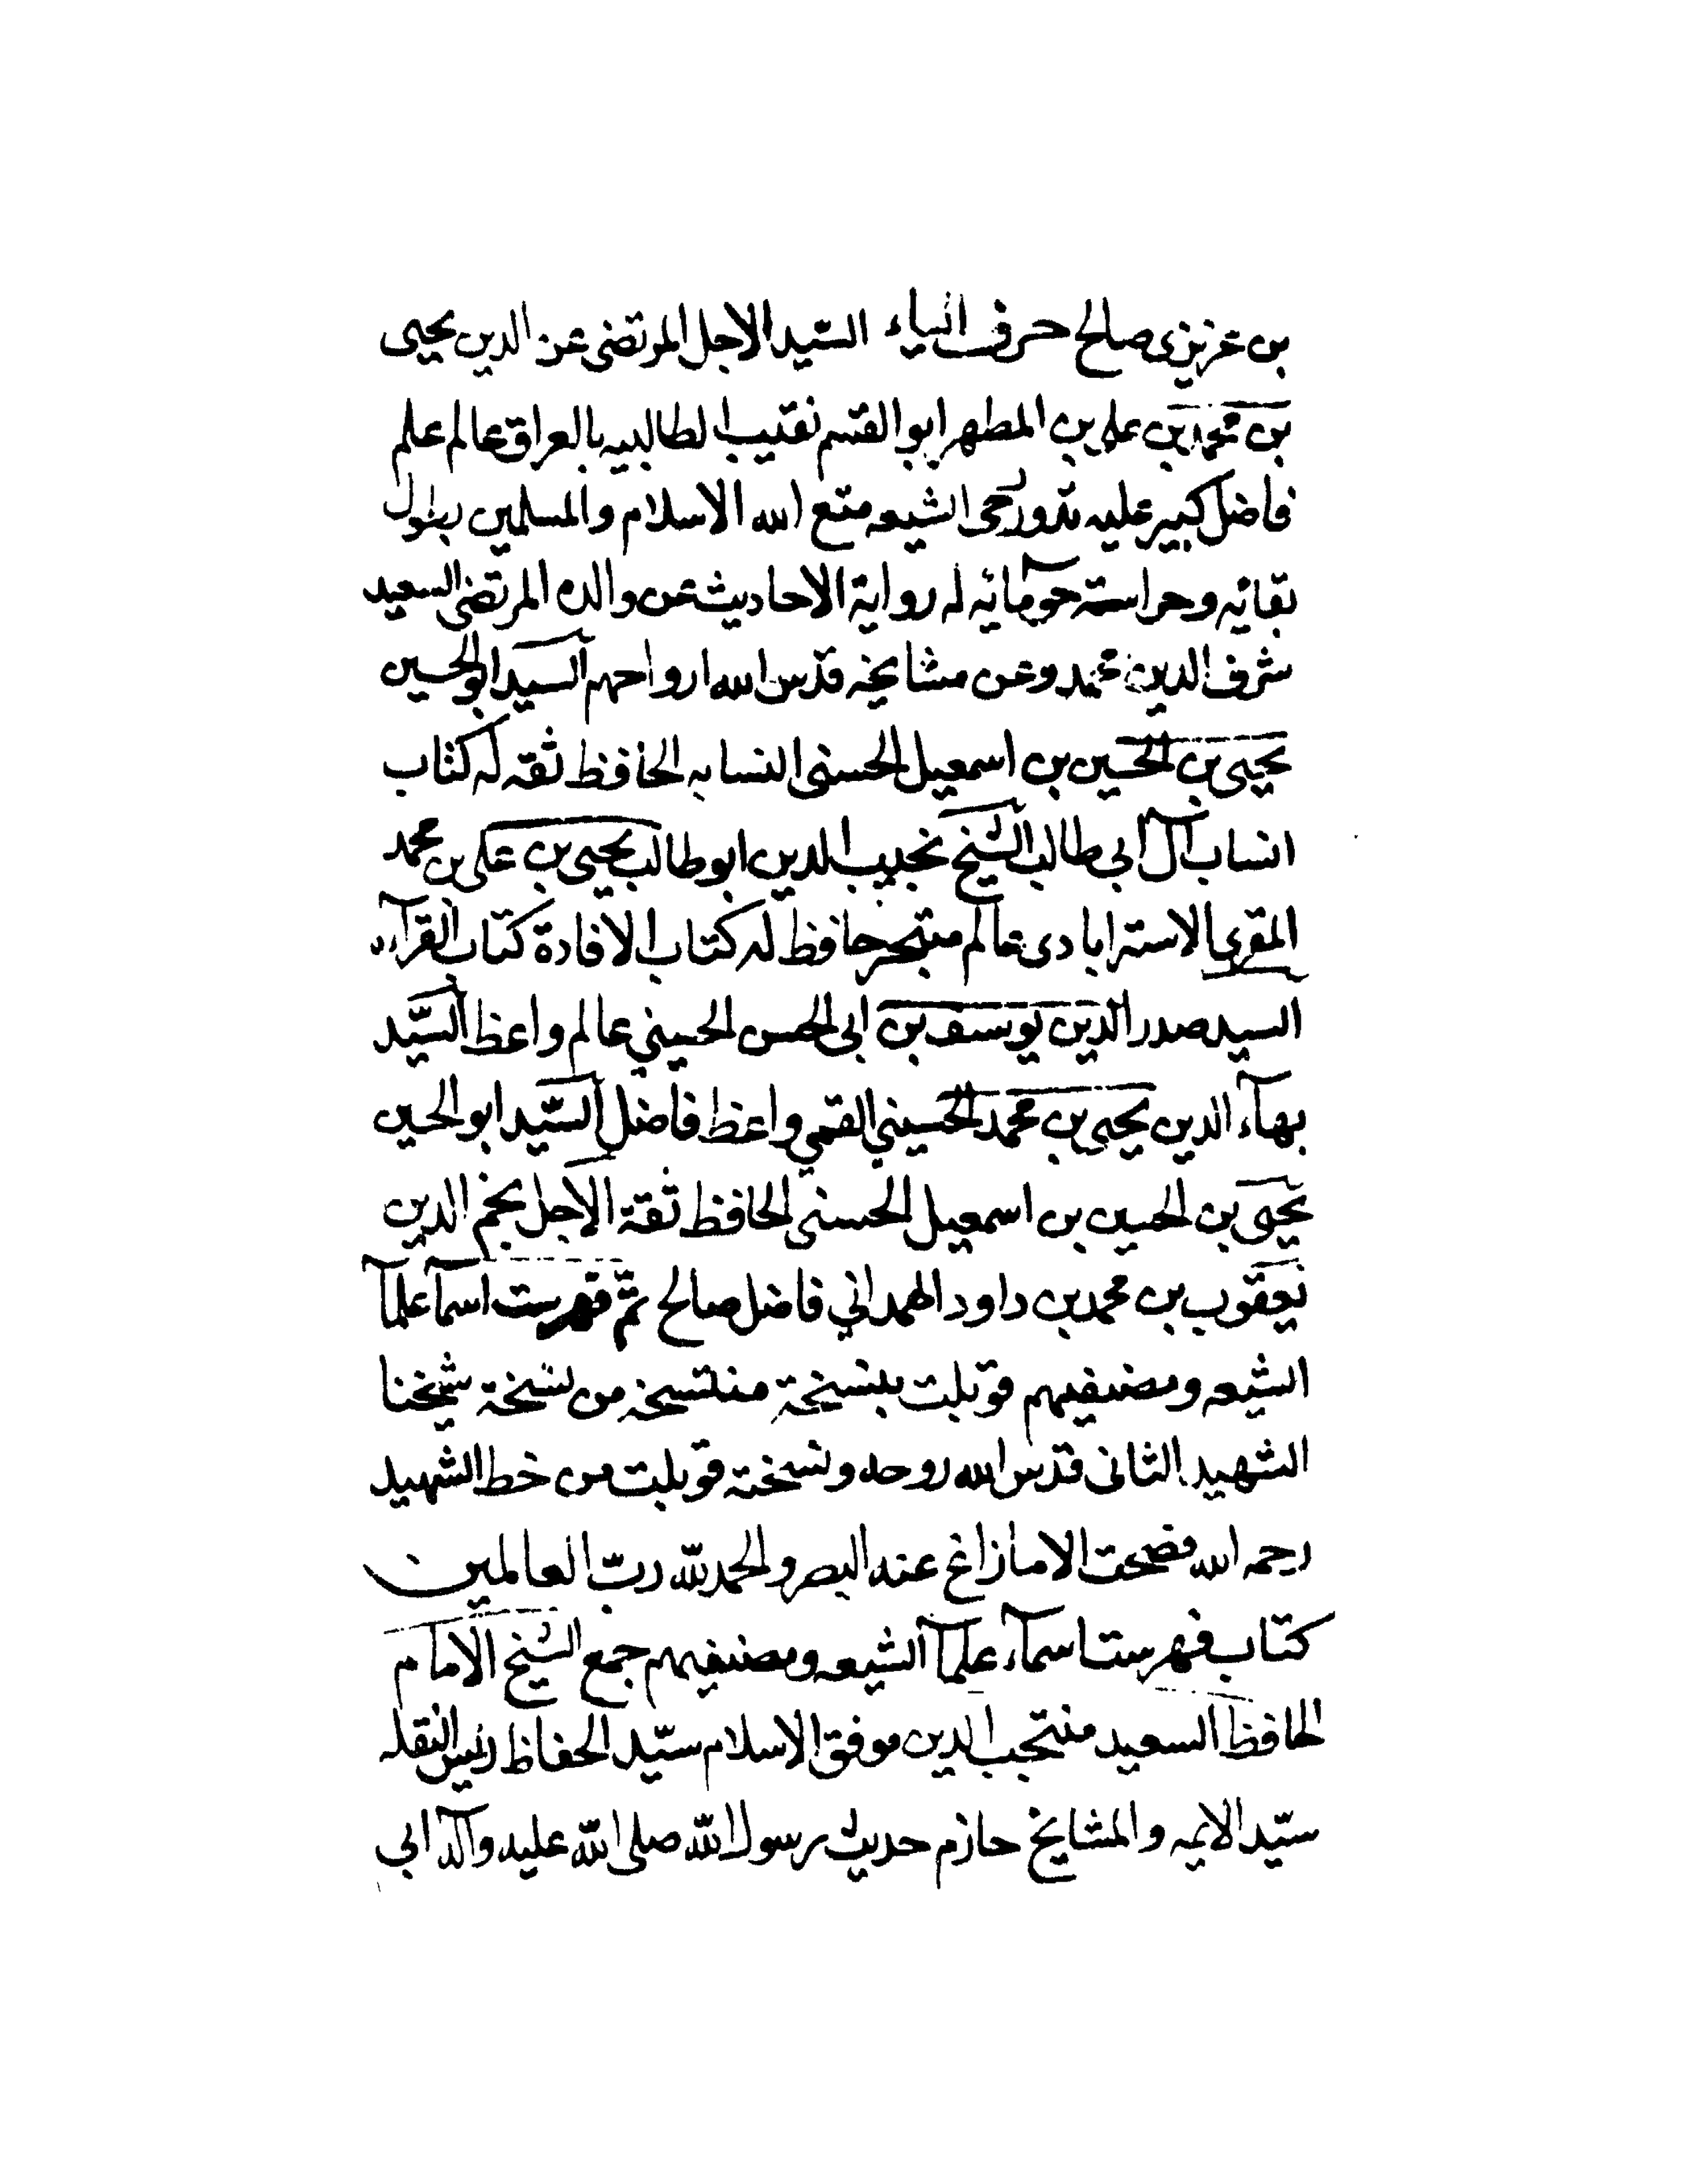 بن عزيزى صالح حرف الياء السّيد الاجل المرتضى عز الدين يحيى
بن محمد بن على بن المطهر ابو القسم نقيب الطالبيه بالعراق عالم علم
فاضل كبير عليه تدور رحى الشيعه متع الله الاسلام والمسلمين بطول
بقائه وحراسة حوبائه له رواية الاحاديث عن والده المرتضى السعيد
شرف الدين محمد وعن مشايخه قدّس الله ارواحهم السيد ابو الحسين
يحيى بن الحسين بن اسمعيل الحسنى النسابه الحافظ ثقه له كتاب
انساب آل ابي طالب الشيخ نجيب الدين ابو طالب يحيى بن على بن محمد
المقرى الاسترابادى عالم متبحر حافظ له كتاب الافادة كتاب القرآءه
السيد صدر الدين يوسف بن ابى الحسن الحسيني عالم واعظ السّيّد
بهآء الدين يحيى بن محمد الحسيني القمي واعظ فاضل السّيّد ابو الحسين
يحيى بن الحسين بن اسمعيل الحسنى الحافظ ثقة الاجل نجم الدين
يعقوب بن محمد بن داود الهمداني فاضل صالح تمّ فهرست اسمآ علمآ
الشيعه ومصنفيهم قوبلت بنسخة منتسخه من نسخة شيخنا
الشهيد الثانى قدّس الله روحه ونسخته قوبلت من خط الشهيد
رحمه الله فصحت الا ما زاغ عنه البصر والحمد لله ربّ العالمين
كتاب فهرست اسمآء علمآ الشيعه ومصنفيهم جمع الشيخ الامام
الحافظ السعيد منتجب الدين موفق الاسلام سيّد الحفاظ رئيس النقله
سيّد الايمه والمشايخ حازم حديث رسول الله صلى الله عليه وآله ابي